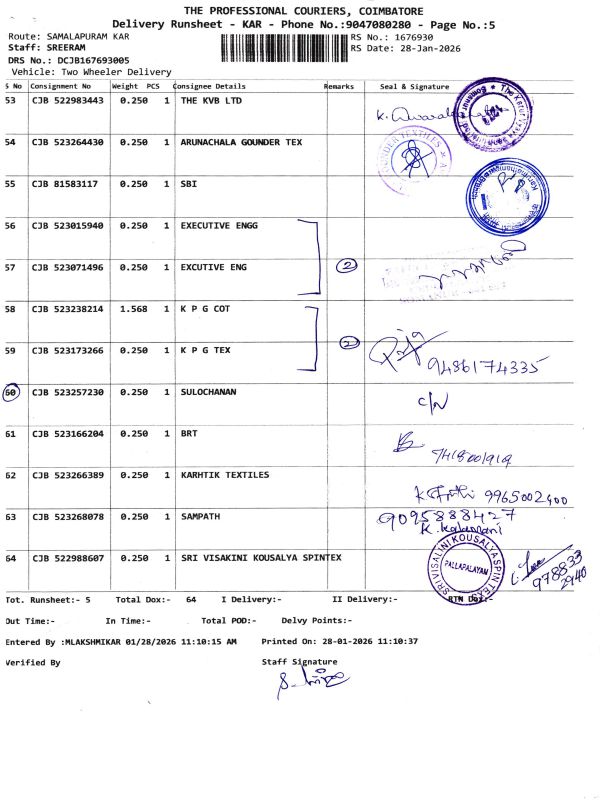 THE PROFESSIONAL COURIERS, COIMBATORE
Delivery Runsheet - KAR - Phone No.:9047080280 - Page No.:5
Route: SAMALAPURAM KAR RS No.: 1676930
Staff: SREERAM RS Date: 28-Jan-2026
DRS No.: DCJB167693005
Vehicle: Two Wheeler Delivery
S No Consignment No Weight PCS Consignee Details Remarks Seal & Signature
53 CJB 522983443 0.250 1 THE KVB LTD
54 CJB 523264430 0.250 1 ARUNACHALA GOUNDER TEX
55 CJB 81583117 0.250 1 SBI
56 CJB 523015940 0.250 1 EXECUTIVE ENGG
57 CJB 523071496 0.250 1 EXCUTIVE ENG 2
58 CJB 523238214 1.568 1 K P G COT
59 CJB 523173266 0.250 1 K P G TEX 2 9486174335
60 CJB 523257230 0.250 1 SULOCHANAN C/N
61 CJB 523166204 0.250 1 BRT
62 CJB 523266389 0.250 1 KARHTIK TEXTILES 9965002400
63 CJB 523268078 0.250 1 SAMPATH 9095888427
K. Kalamani
64 CJB 522988607 0.250 1 SRI VISAKINI KOUSALYA SPINTEX PALLAPALAYAM 978833
2940
Tot. Runsheet:- 5 Total Dox:- 64 I Delivery:- II Delivery:- RTN Dox:-
Out Time:- In Time:- Total POD:- Delvy Points:-
Entered By :MLAKSHMIKAR 01/28/2026 11:10:15 AM Printed On: 28-01-2026 11:10:37
Verified By Staff Signature